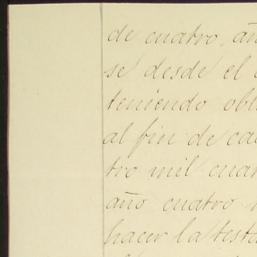 de cuatro, añ
se desde el
teniendo obl
al fin de ca
tro mil cua
año cuatro
hacer la test